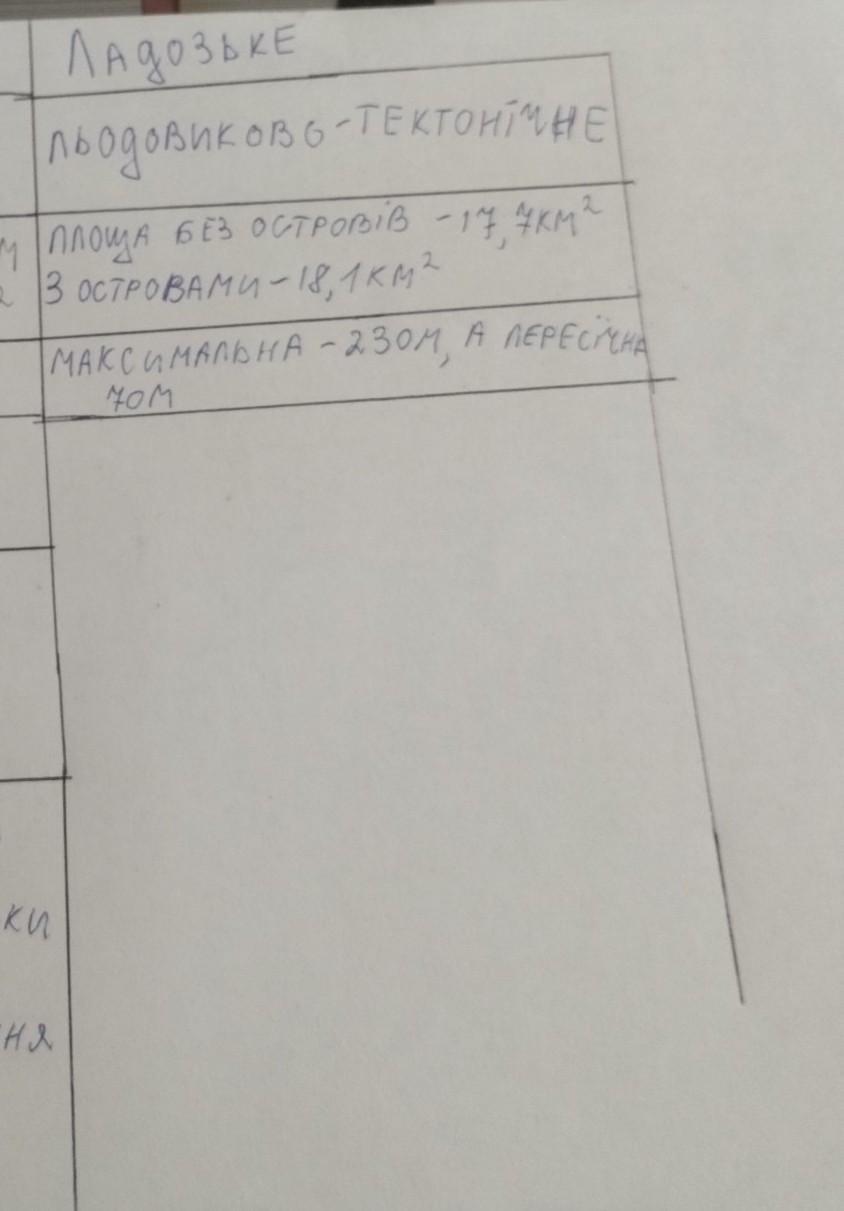 Ладозьке
льодовиково-тектонічне
площа без островів - 17,7км²
м
з островами - 18,1км²
2
максимальна - 230м, а пересічна
70м
ки
ня